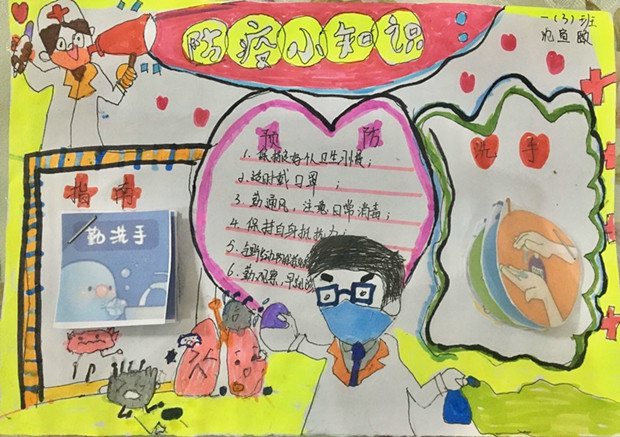 防疫小知识
一(3)班
预防
1. 保持良好个人卫生习惯；
2. 适时戴口罩；
3. 勤通风，注意日常消毒；
4. 保持自身抵抗力；
5.
6. 勤观察，早
指南
勤洗手
洗手